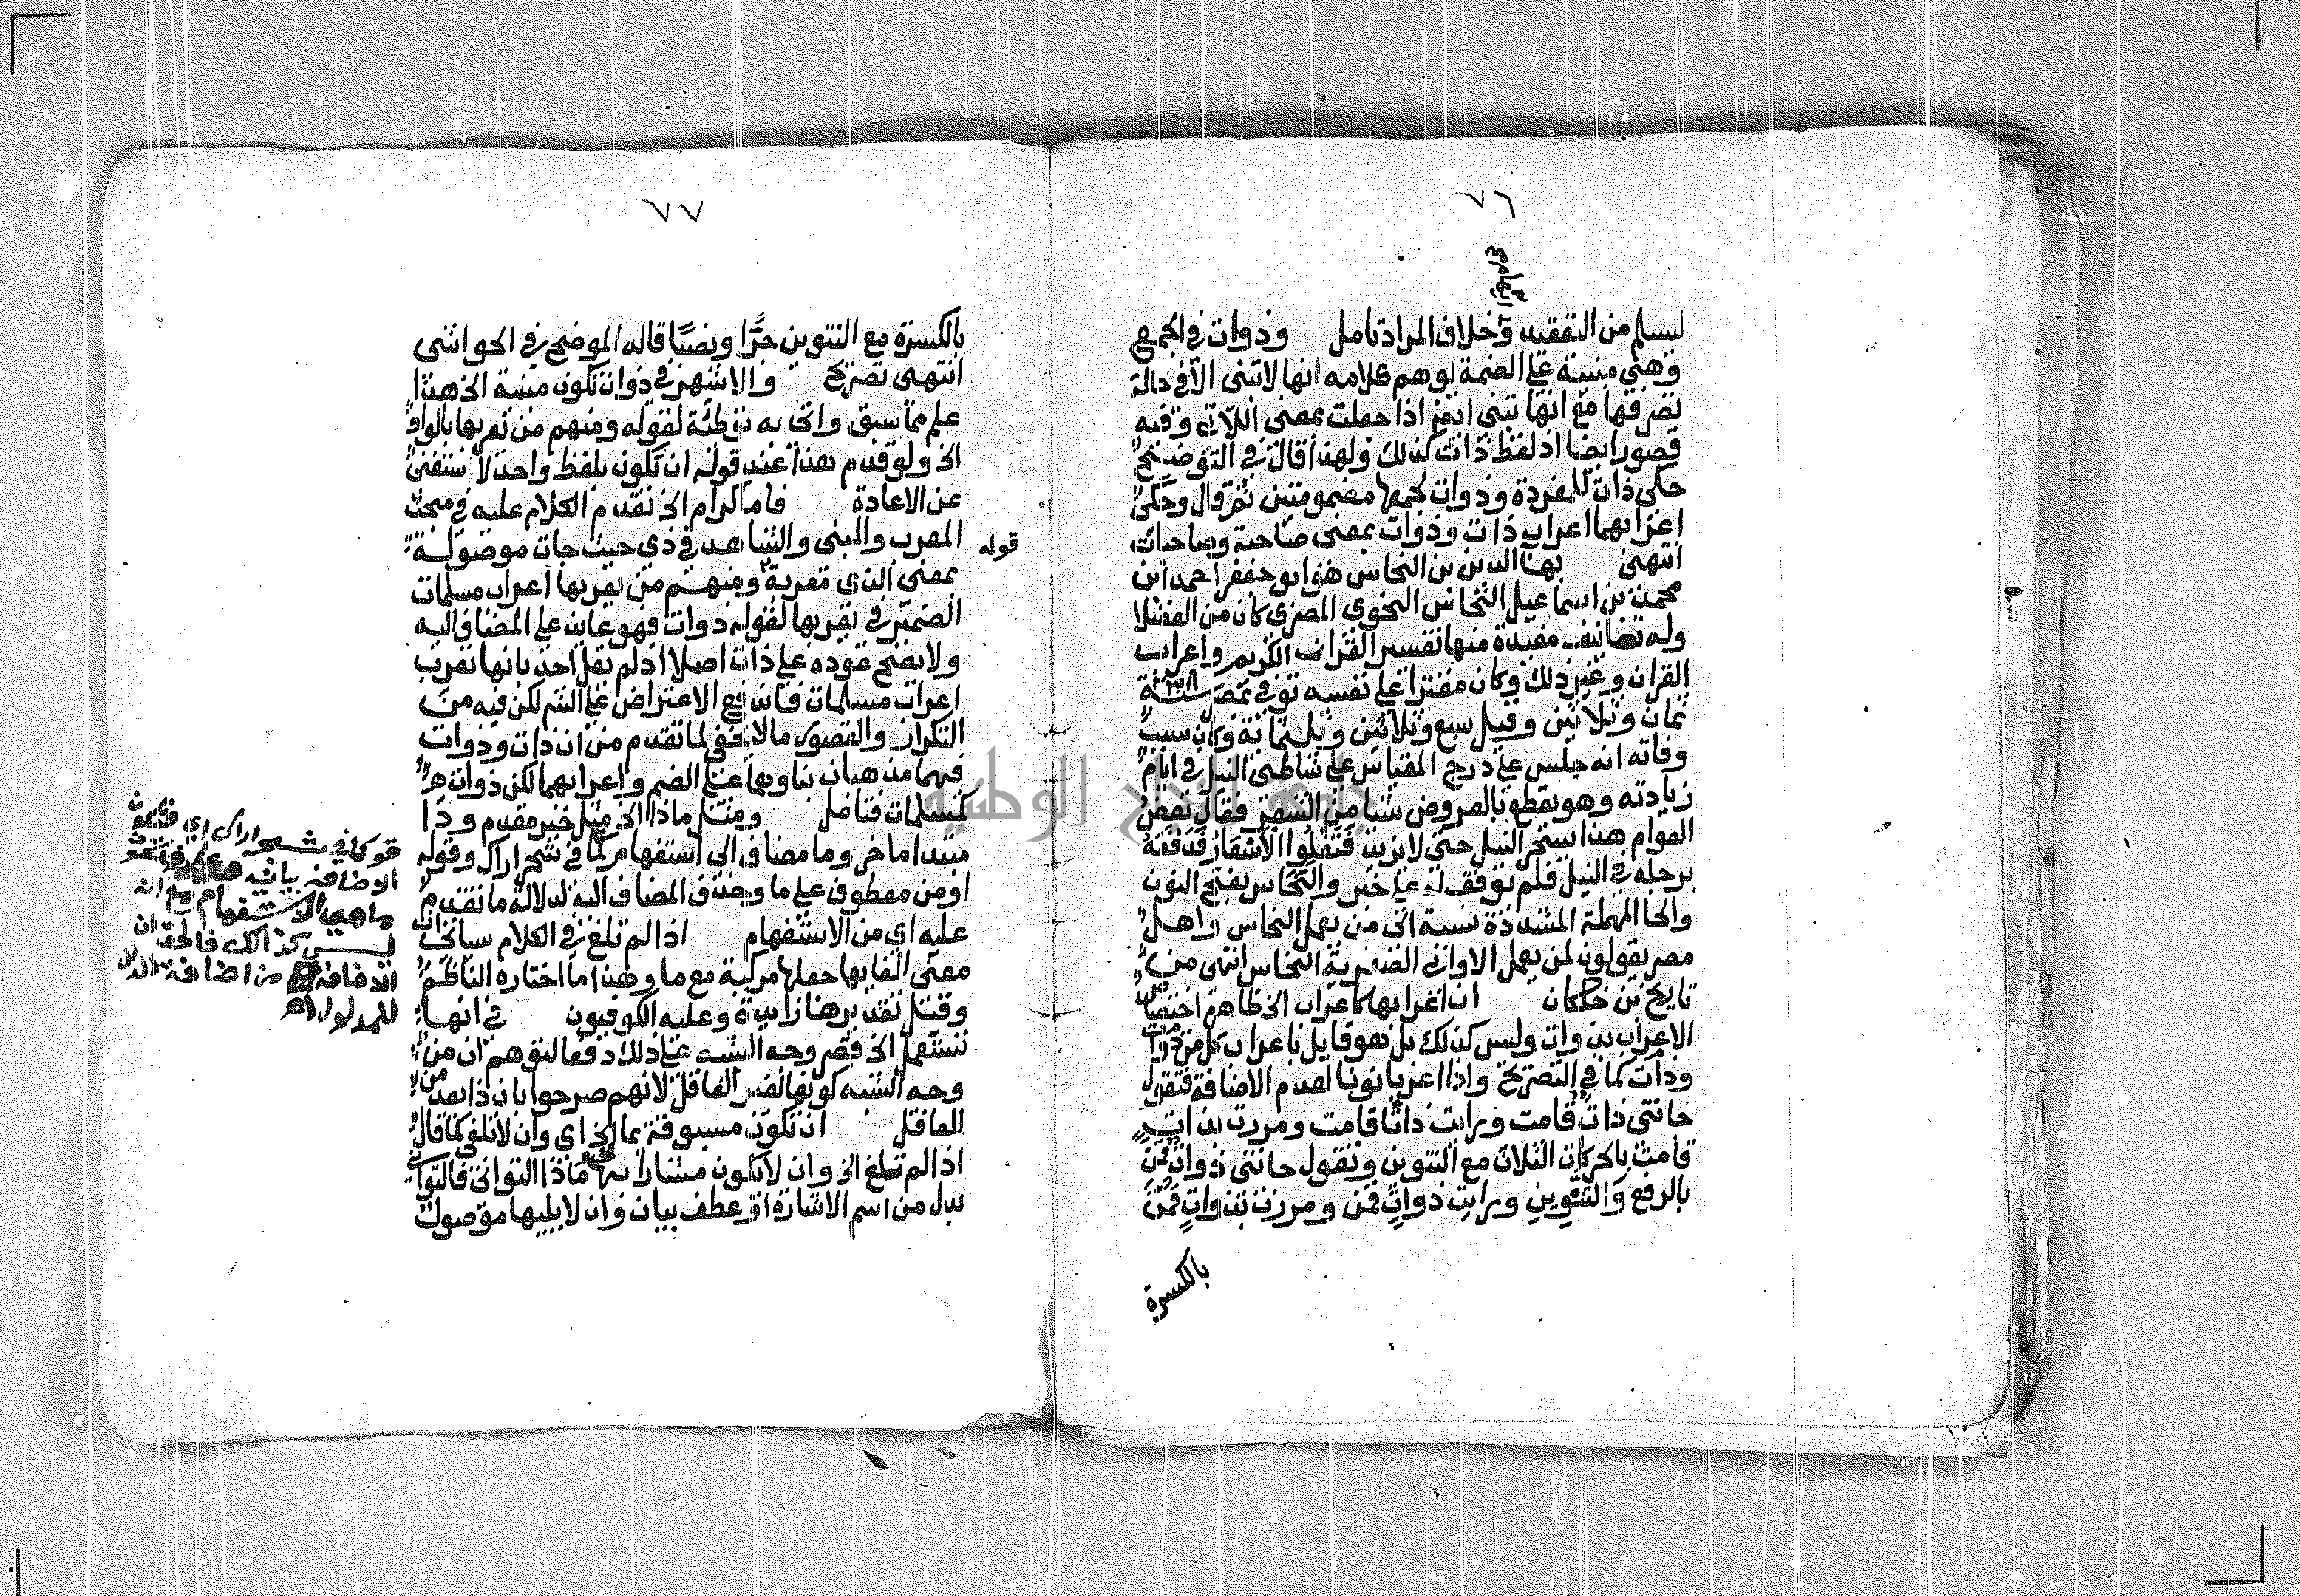 ٧٦
ليسلم من التعقيد وخلاف المراد تامل وذوات في الجمع
وهي مبنية على الضمة يوهم كلامه انها لا تبنى الا في حالة
تصرفها مع انها تبنى ايضا اذا جعلت بمعنى اللاتي وفيه
قصور ايضا اذ لفظ ذات كذلك ولهذا قال في التوضيح
حكى ذات للمفردة وذوات لجمعها مضمومتين ثم قال وحكى
اعرابهما اعراب ذات وذوات بمعنى صاحبة وصاحبات
انتهى بهاالدين بن النحاس هو ابو جعفر احمد ابن
محمد بن اسماعيل النحاس النحوي المصري كان من الفضلا
وله تصانيف مفيدة منها تفسير القران الكريم واعراب
القران وغير ذلك وكان مقترا على نفسه توفي بمصر سنة ٣٣٨
ثمان وثلاثين وقيل سبع وثلاثين وثلثمائة وكان سبب
وفاته انه جلس على درج المقياس على شاطئ النيل في ايام
زيادته وهو يقطع بالعروض شيئا من الشعر فقال بعض
العوام هذا يسحر النيل حتى لا يزيد فتغلوا الاسعار فدفعه
برجله في النيل فلم يوقف له على خبر والنحاس بفتح النون
والحا المهملة المشددة نسبة الى من يعمل النحاس واهل
مصر يقولون لمن يعمل الاواني الصفرية النحاس انتهى من
تاريخ بن خلكان ان اعرابها كاعراب الخ ظاهره اختصاص
الاعراب بذوات وليس كذلك بل هو قايل باعراب كل من ذوات
وذات كما في التصريح واذا اعربا نونا لعدم الاضافة فتقول
جاتني ذات قامت ورايت ذاتا قامت ومررت بذات
قامت بالحركات الثلاث مع التنوين وتقول جاتني ذوات قمن
بالرفع والتنوين ورايت ذوات قمن ومررت بذوات قمن
بالكسرة
٧٧
بالكسرة مع التنوين جرّا ونصبًا قاله الموضح في الحواشي
انتهى تصريح والاشهر في ذوات تكون مبنية الخ هذا
علم مما سبق واتى به توطئة لقوله ومنهم من يعربها بالواو
الخ ولو قدم هذا عند قوله ان تكون بلفظ واحد لاستغنى
عن الاعادة فاما كرام الخ تقدم الكلام عليه في مبحث
المعرب والمبني والشاهد في ذي حيث جات موصولة
قوله
بمعنى الذي معربة ومنهم من يعربها اعراب مسلمات
الضمير في يعربها لقوله ذوات فهو عايد على المضاف اليه
ولا يصح عوده على ذات اصلا اذ لم يقل احد بانها تعرب
اعراب مسلمات فاندفع الاعتراض على الش لكن فيه من
التكرار والقصور ما لا يخفى لما تقدم من ان ذات وذوات
فيهما مذهبان بناوهما على الضم واعرابهما لكن ذوات
كمسلمات فتامل ومثل ماذا الخ مثل خبر مقدم وذا
مبتدا ماخر وما مضاف الى استفهام كما في شجر اراك وقوله
او من معطوف على ما وحذف المضاف اليه لدلالة ما تقدم
عليه اي من الاستفهام اذا لم تلغ في الكلام سياتي ان
معنى الغايها جعلها مركبة مع ما وهذا ما اختاره الناظم
وقيل تقديرها زايدة وعليه الكوفيون في انها
تستعمل الخ قصر وجه الشبه على ذلك دفعا لتوهم ان من
وجه الشبه كونها لغير العاقل لانهم صرحوا بان ذا بعد من لا
للعاقل ان تكون مسبوقة بما الخ اي وان لا تلغى كما قال
اذا لم تلغ الخ وان لا تكون مشارا بها ماذا التواني فالتواني
بدل من اسم الاشارة او عطف بيان وان لا يليها موصول
قو كما في شجر اراك اي
الاضافة بيانيه
ما هي الاستفهام
ليس كذالك فالحق ان
الاضافة من اضافة الدال
للمدلول اه
جامعة النجاح الوطنية